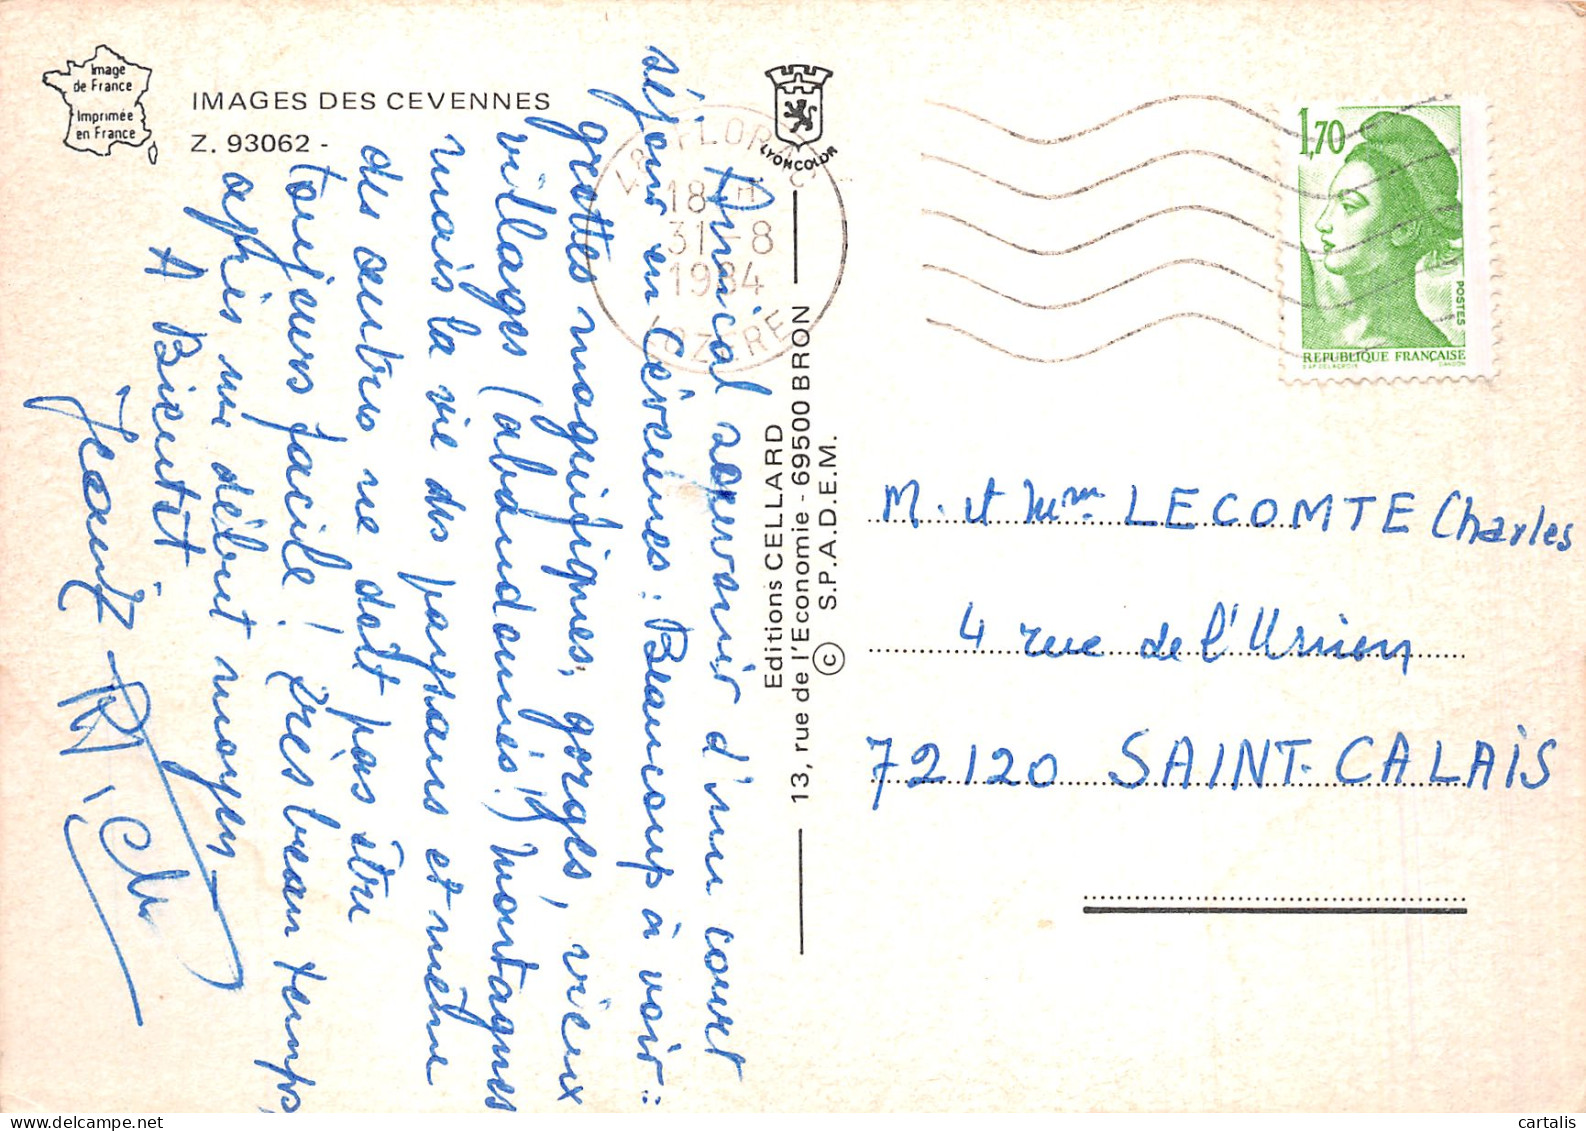 Image
de France
Imprimée
en France
IMAGES DES CEVENNES
Z. 93062 -
LYONCOLOR
48 FLORAC
18 H
31-8
1984
LOZERE
1,70
POSTES
REPUBLIQUE FRANÇAISE
Amical souvenir d'un court
séjour en Cévennes: Beaucoup à voir:
grottes magnifiques, gorges, vieux
villages (abandonnés!) montagnes
mais la vie des paysans et même
des autres ne doit pas être
toujours facile! Très beau temps,
après un début moyen
A Bientôt
Editions CELLARD
13, rue de l'Economie - 69500 BRON
© S.P.A.D.E.M.
M. et Mme LECOMTE Charles
4 rue de l'Union
72120 SAINT-CALAIS
cartalis